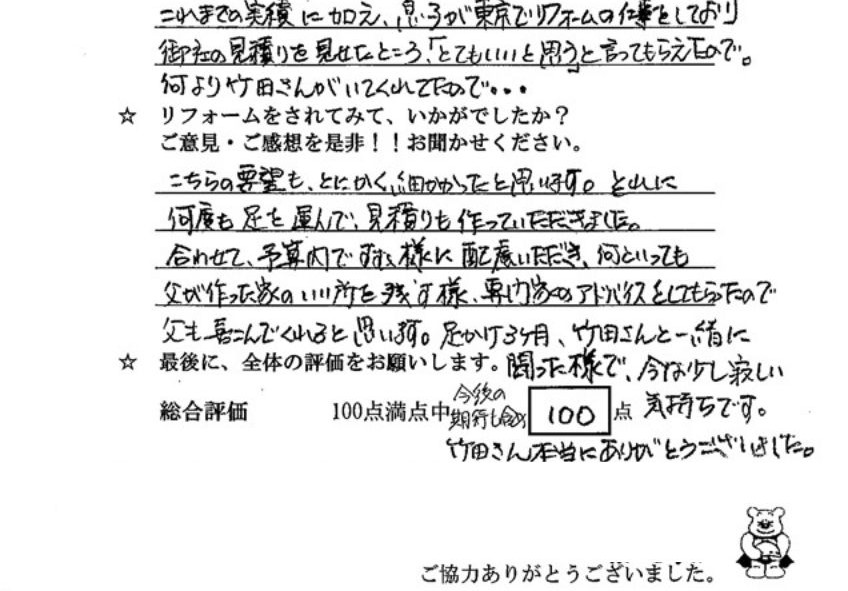 これまでの実績に加え、息子が東京でリフォームの仕事をしており
御社の見積りを見せたところ、「とてもいいと思う」と言ってもらえたので。
何より竹田さんがいてくれてたので・・・
☆ リフォームをされてみて、いかがでしたか？
ご意見・ご感想を是非！！お聞かせください。
こちらの要望も、とにかく細かかったと思います。それに
何度も足を運んで、見積りも作っていただきました。
合わせて、予算内ですむ様に配慮いただき、何といっても
父が作った家のいい所を残す様、専門家のアドバイスをしてもらったので
父も喜こんでくれると思います。足かけ3ヶ月、竹田さんと一緒に
☆ 最後に、全体の評価をお願いします。闘った様で、今は少し寂しい
総合評価 100点満点中 今後の期待も含め 100 点 気持ちです。
竹田さん本当にありがとうございました。
ご協力ありがとうございました。